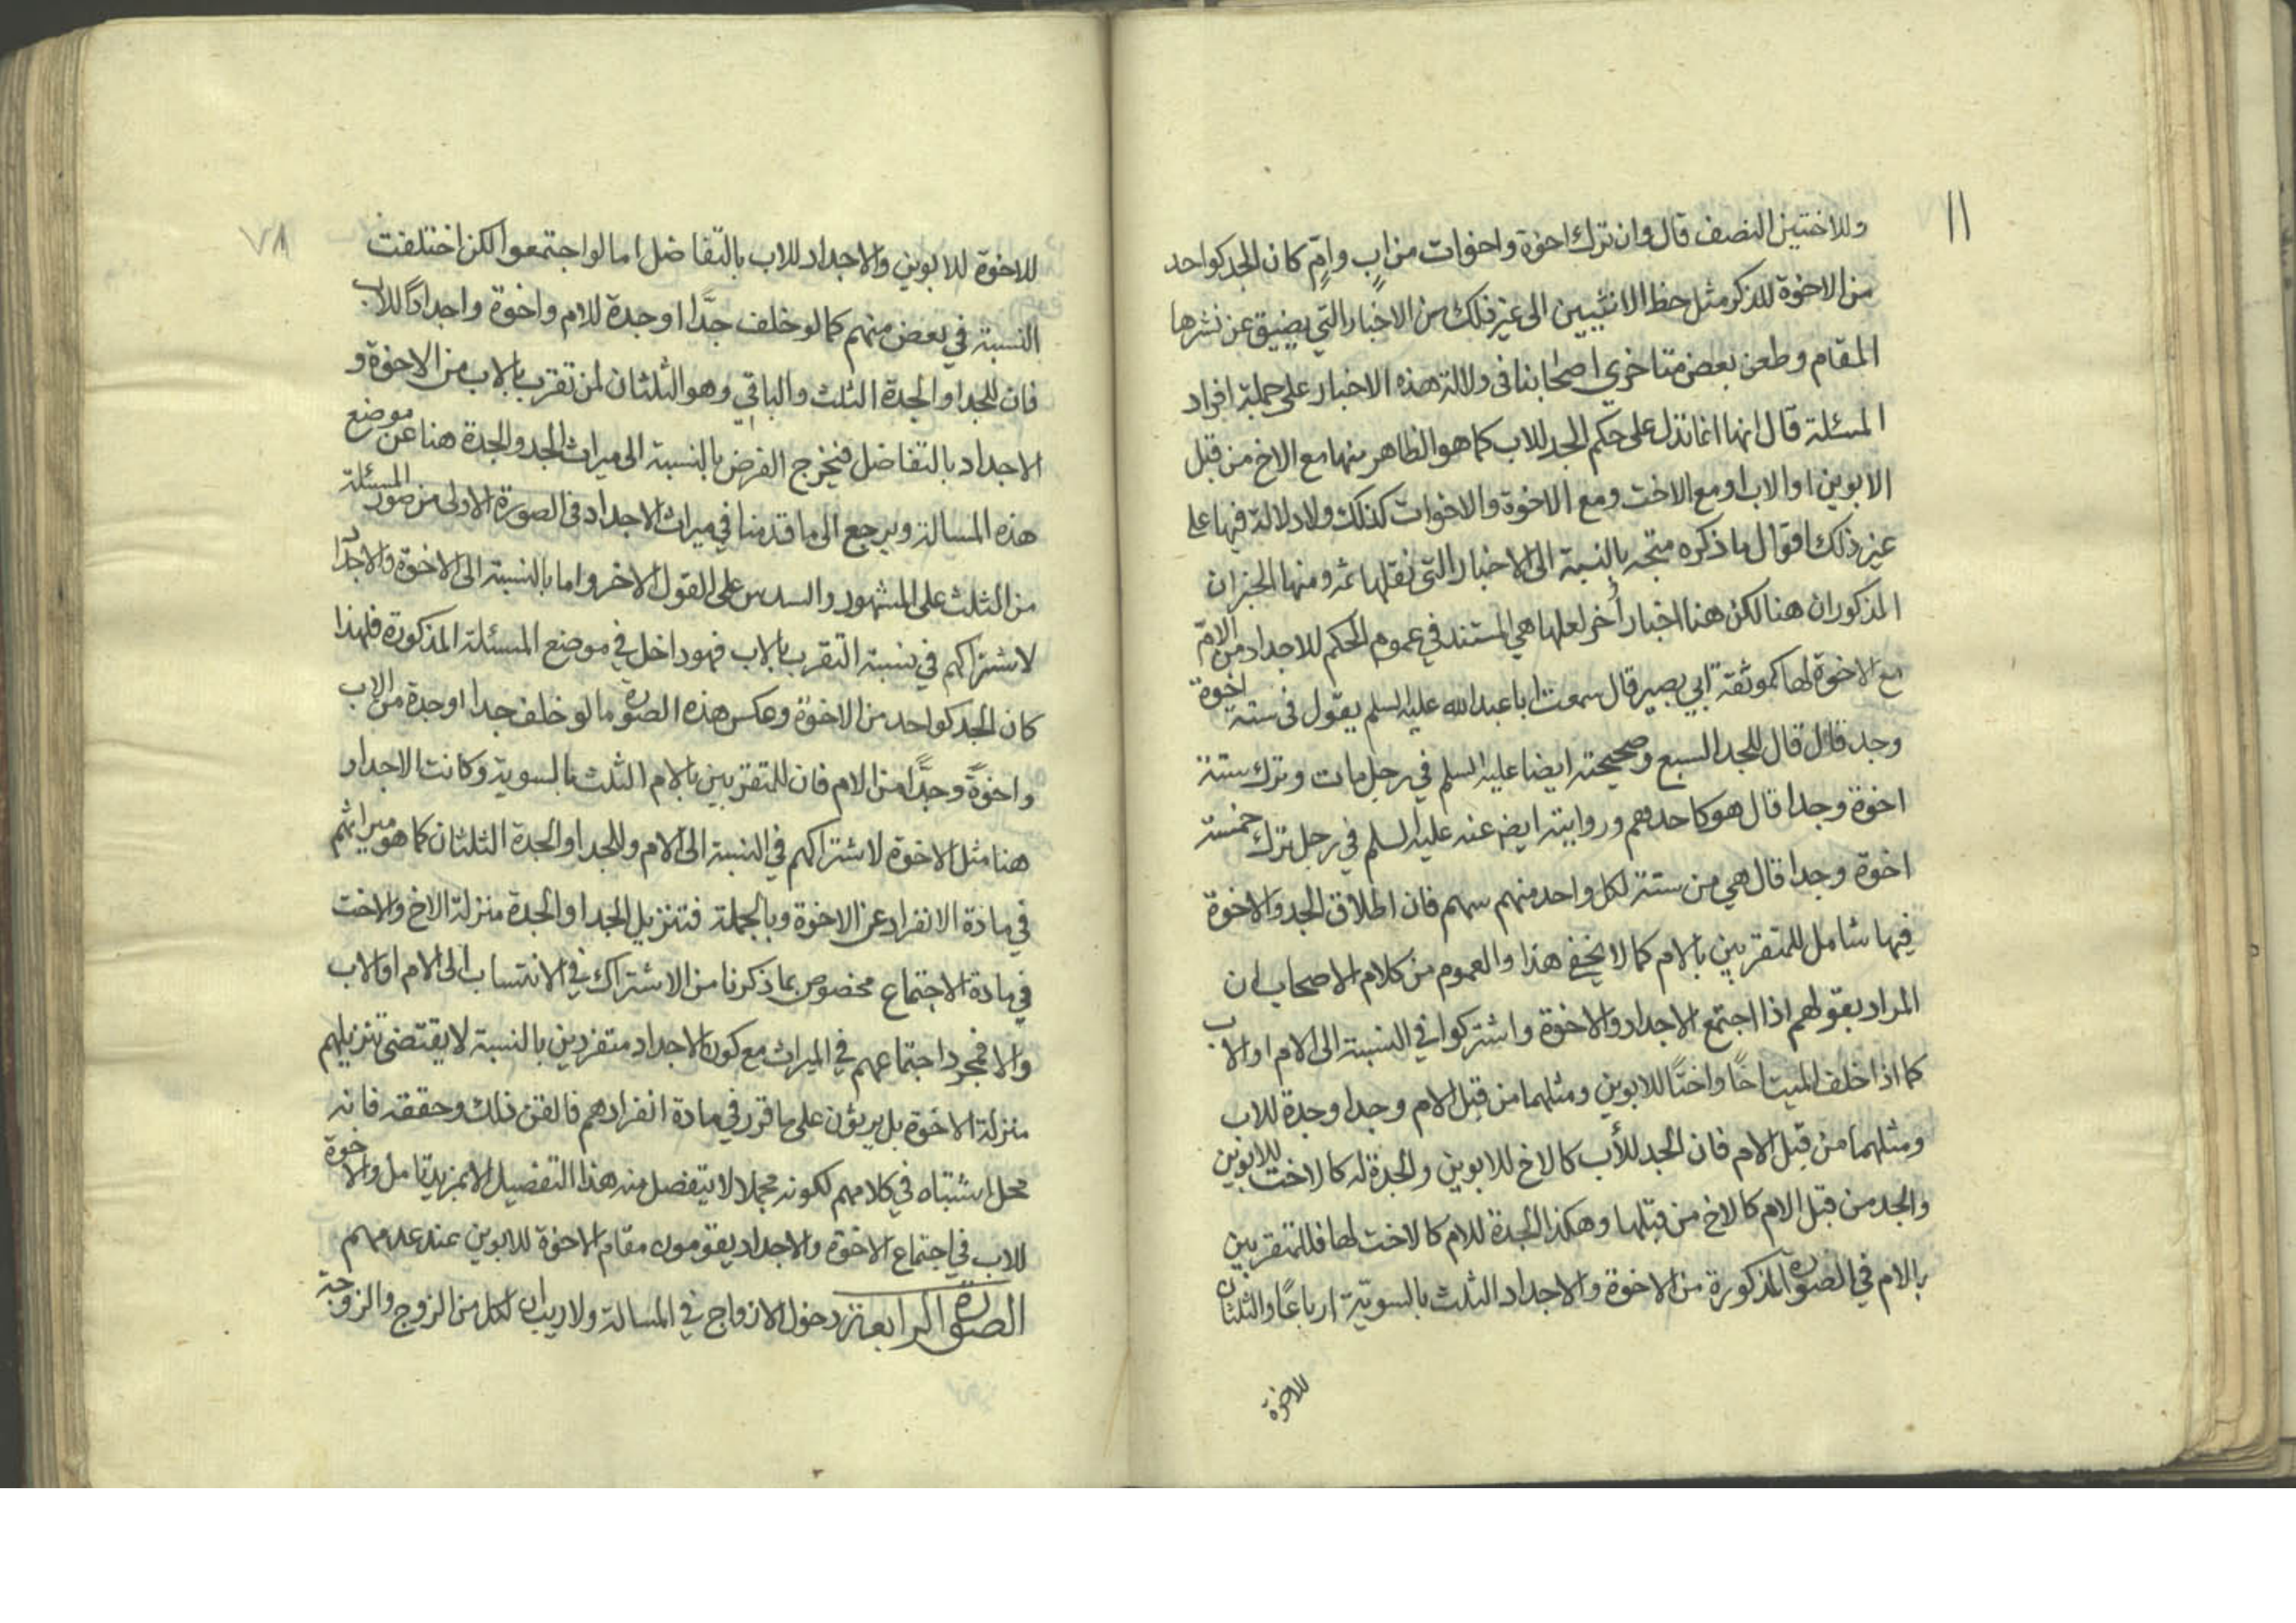 ١١
وللاختين النصف قال وان ترك اخوة واخوات من اب وام كان الجد كواحد
من الاخوة للذكر مثل حظ الانثيين الى غير ذلك من الاخبار التي يضيق عن نشرها
المقام وطعن بعض متاخري اصحابنا فى دلالة هذه الاخبار على جملة افراد
المسئلة قال انها انما تدل على حكم الجد للاب كما هو الظاهر منها مع الاخ من قبل
الابوين او الاب او مع الاخت ومع الاخوة والاخوات كذلك ولا دلالة فيها على
غير ذلك اقول ما ذكره متجه بالنسبة الى الاخبار التي نقلها ثمه ومنها الخبران
المذكوران هنا لكن هنا اخبار أخر لعلها هي المستند في عموم الحكم للاجداد من الام
مع الاخوة لها كموثقة ابي بصير قال سمعت ابا عبد الله عليه السلم يقول فى ستة اخوة
وجد قال قال للجد السبع وصحيحته ايضا عليه السلم في رجل مات وترك ستة
اخوة وجدا قال هو كاحدهم وروايته ايضا عنه عليه السلم في رجل ترك خمسة
اخوة وجدا قال هي من ستة لكل واحد منهم سهم فان اطلاق الجد والاخوة
فيها شامل للمتقربين بالام كما لا يخفى هذا والعموم من كلام الاصحاب ان
المراد بقولهم اذا اجتمع الاجداد والاخوة واشتركوا في النسبة الى الام او الاب
كما اذا خلف الميت اخًا واختًا للابوين ومثلهما من قبل الام وجدا وجدة للاب
ومثلهما من قبل الام فان الجد للأب كالاخ للابوين والجدة له كالاخت للابوين
والجد من قبل الام كالاخ من قبلها وهكذا الجدة للام كالاخت لها فللمتقربين
بالام في الصورة المذكورة من الاخوة والاجداد الثلث بالسويّة ارباعًا والثلثان
للاخوة
٧٨
للاخوة للابوين والاجداد للاب بالتفاضل اما لو اجتمعوا لكن اختلفت
النسبة في بعض منهم كما لو خلف جدًّا او جدة للام واخوة واجدادًا للاب
فان للجد او الجدة الثلث والباقي وهو الثلثان لمن تقرب بالاب من الاخوة و
الاجداد بالتفاضل فيخرج الفرض بالنسبة الى ميراث الجد والجدة هنا عن موضع
هذه المسالة ويرجع الى ما قدمنا في ميراث الاجداد فى الصورة الاولى من صور المسئلة
من الثلث على المشهور والسدس على القول الاخر واما بالنسبة الى الاخوة والاجداد
لاشتراكهم في نسبة التقرب بالاب فهو داخل في موضع المسئلة المذكورة فلهذا
كان الجد كواحد من الاخوة وعكس هذه الصورة ما لو خلف جدا او جدة من الاب
واخوةً وجدًّا من الام فان للمتقربين بالام الثلث بالسوية وكانت الاجداد
هنا مثل الاخوة لاشتراكهم في النسبة الى الام وللجد او الجدة الثلثان كما هو ميراثهم
في مادة الانفراد عن الاخوة وبالجملة فتنزيل الجد او الجدة منزلة الاخ والاخت
في مادة الاجتماع مخصوص بما ذكرنا من الاشتراك في الانتساب الى الام او الاب
والا فمجرد اجتماعهم في الميراث مع كون الاجداد متفردين بالنسبة لا يقتضى تنزيلهم
منزلة الاخوة بل يرثون على ما قرر في مادة انفرادهم فالقن ذلك وحققه فانه
محل اشتباه في كلامهم لكونه مجملا لا يتفصل منه هذا التفصيل الا بمزيد تامل والاخوة
للاب في اجتماع الاخوة والاجداد يقومون مقام الاخوة للابوين عند عدمهم
الصورة الرابعة دخول الازواج في المسالة ولا ريب ان لكل من الزوج والزوجة